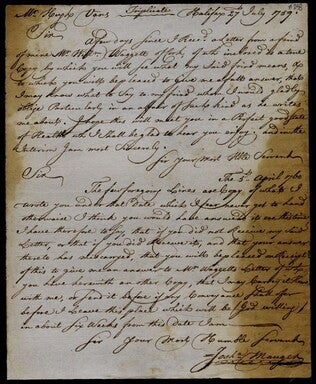 Mr. Hugh Vans Triplicate Halifax 27 July 1759.
Sir
A few days since, I Rec'd a Letter from a friend
of mine Mr. Wm. Waggett of Cork, I hath inclosed as a true
Copy by which you will see what my said friend says,
to which you will be pleased to Give me a full answer, that
I may know what to say to my friend whom I would gladly
oblige Particularly in an affair of such kind as he writes
me about. I hope this will meet you in a Perfect good State
of Health wch I shall be glad to hear you enjoy, and in the
Interim I am most Sincerely
Sir Your Most Hble Servant
Sir The 3d. April 1760
The foregoing Lines are Copy of what I
wrote you under that date which I fear never got to hand
otherwise I think you would have answered it
I have therefore to say that if you did not Receive my said
Letter, or that if you did Receive it, and that your answer
there to has miscarryed, that you will be pleased on Receipt
of this to give me an answer to Mr Waggetts Letter of wch
you have herewith another Copy, that I may Carry it Home
with me, or send it before if any Conveyance shall offer
before I Leave this place which will be (God willing)
in about Six Weeks from this date I am
Sir Your Most Humble Servant
Joshua Mauger